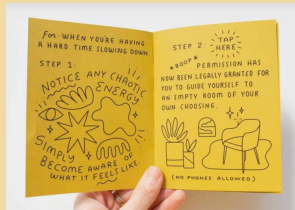 for: WHEN YOU'RE HAVING
A HARD TIME SLOWING DOWN.
STEP 1:
NOTICE ANY CHAOTIC
ENERGY
SIMPLY
BECOME AWARE OF
WHAT IT FEELS LIKE.
STEP 2: TAP
HERE
*BOOP* PERMISSION HAS
NOW BEEN LEGALLY GRANTED FOR
YOU TO GUIDE YOURSELF TO
AN EMPTY ROOM OF YOUR
OWN CHOOSING.
(NO PHONES ALLOWED)